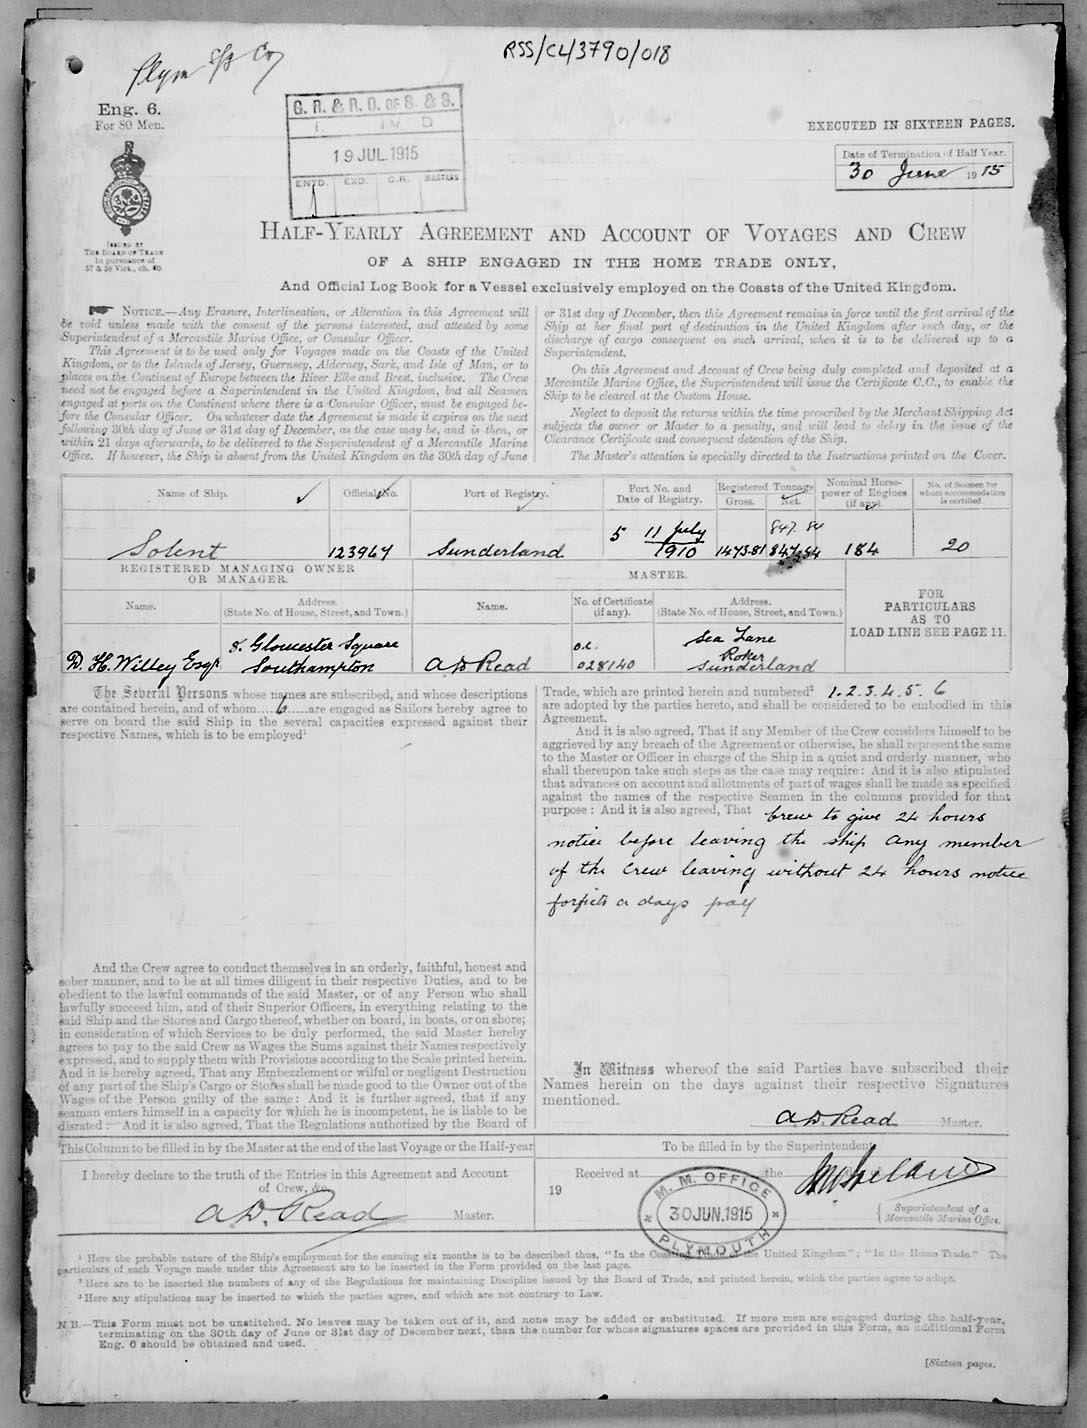 RSS/CL/3790/018
Plym S/S Co
Eng. 6.
For 80 Men.
G. R. & R. O. OF S. & S.
19 JUL. 1915
ENTD. EXD. C.R. MASTERS
EXECUTED IN SIXTEEN PAGES.
Date of Termination of Half Year.
30 June 1915
ISSUED BY
THE BOARD OF TRADE
in pursuance of
57 & 58 Vict., ch. 60.
HALF-YEARLY AGREEMENT AND ACCOUNT OF VOYAGES AND CREW
OF A SHIP ENGAGED IN THE HOME TRADE ONLY,
And Official Log Book for a Vessel exclusively employed on the Coasts of the United Kingdom.
NOTICE.—Any Erasure, Interlineation, or Alteration in this Agreement will
be void unless made with the consent of the persons interested, and attested by some
Superintendent of a Mercantile Marine Office, or Consular Officer.
This Agreement is to be used only for Voyages made on the Coasts of the United
Kingdom, or to the Islands of Jersey, Guernsey, Alderney, Sark, and Isle of Man, or to
places on the Continent of Europe between the River Elbe and Brest, inclusive. The Crew
need not be engaged before a Superintendent in the United Kingdom, but all Seamen
engaged at ports on the Continent where there is a Consular Officer, must be engaged be-
fore the Consular Officer. On whatever date the Agreement is made it expires on the next
following 30th day of June or 31st day of December, as the case may be, and is then, or
within 21 days afterwards, to be delivered to the Superintendent of a Mercantile Marine
Office. If however, the Ship is absent from the United Kingdom on the 30th day of June
or 31st day of December, then this Agreement remains in force until the first arrival of the
Ship at her final port of destination in the United Kingdom after such day, or the
discharge of cargo consequent on such arrival, when it is to be delivered up to a
Superintendent.
On this Agreement and Account of Crew being duly completed and deposited at a
Mercantile Marine Office, the Superintendent will issue the Certificate C.C., to enable the
Ship to be cleared at the Custom House.
Neglect to deposit the returns within the time prescribed by the Merchant Shipping Act
subjects the owner or Master to a penalty, and will lead to delay in the issue of the
Clearance Certificate and consequent detention of the Ship.
The Master's attention is specially directed to the Instructions printed on the Cover.
Name of Ship. Official No. Port of Registry. Port No. and Date of Registry. Registered Tonnage Gross. Net. Nominal Horse-power of Engines (if any). No. of Seamen for whom accommodation is certified.
847.84
Solent 123967 Sunderland 5 11 July 1910 1473.81 847.84 184 20
REGISTERED MANAGING OWNER
OR MANAGER.
MASTER.
FOR
PARTICULARS
AS TO
LOAD LINE SEE PAGE 11.
Name. Address. (State No. of House, Street, and Town.) Name. No. of Certificate (if any). Address. (State No. of House, Street, and Town.)
D. H. Willey Esqr 8. Gloucester Square Southampton A D Read o.c. 028140 Sea Lane Roker Sunderland
The Several Persons whose names are subscribed, and whose descriptions
are contained herein, and of whom....6.....are engaged as Sailors hereby agree to
serve on board the said Ship in the several capacities expressed against their
respective Names, which is to be employed¹
And the Crew agree to conduct themselves in an orderly, faithful, honest and
sober manner, and to be at all times diligent in their respective Duties, and to be
obedient to the lawful commands of the said Master, or of any Person who shall
lawfully succeed him, and of their Superior Officers, in everything relating to the
said Ship and the Stores and Cargo thereof, whether on board, in boats, or on shore;
in consideration of which Services to be duly performed, the said Master hereby
agrees to pay to the said Crew as Wages the Sums against their Names respectively
expressed, and to supply them with Provisions according to the Scale printed herein.
And it is hereby agreed, That any Embezzlement or wilful or negligent Destruction
of any part of the Ship's Cargo or Stores shall be made good to the Owner out of the
Wages of the Person guilty of the same: And it is further agreed, that if any
seaman enters himself in a capacity for which he is incompetent, he is liable to be
disrated: And it is also agreed, That the Regulations authorized by the Board of
Trade, which are printed herein and numbered² 1. 2. 3. 4. 5. 6
are adopted by the parties hereto, and shall be considered to be embodied in this
Agreement.
And it is also agreed, That if any Member of the Crew considers himself to be
aggrieved by any breach of the Agreement or otherwise, he shall represent the same
to the Master or Officer in charge of the Ship in a quiet and orderly manner, who
shall thereupon take such steps as the case may require: And it is also stipulated
that advances on account and allotments of part of wages shall be made as specified
against the names of the respective Seamen in the columns provided for that
purpose: And it is also agreed, That ³ Crew to give 24 hours
notice before leaving the ship any member
of the crew leaving without 24 hours notice
forfeits a days pay
In Witness whereof the said Parties have subscribed their
Names herein on the days against their respective Signatures
mentioned.
A D. Read Master.
This Column to be filled in by the Master at the end of the last Voyage or the Half-year
I hereby declare to the truth of the Entries in this Agreement and Account
of Crew, &c.
A D. Read Master.
To be filled in by the Superintendent
Received at the
19
M. M. OFFICE
30 JUN. 1915
PLYMOUTH
Superintendent of a
Mercantile Marine Office.
¹ Here the probable nature of the Ship's employment for the ensuing six months is to be described thus, "In the Coasting Trade of the United Kingdom"; "In the Home Trade." The
particulars of each Voyage made under this Agreement are to be inserted in the Form provided on the last page.
² Here are to be inserted the numbers of any of the Regulations for maintaining Discipline issued by the Board of Trade, and printed herein, which the parties agree to adopt.
³ Here any stipulations may be inserted to which the parties agree, and which are not contrary to Law.
N.B.—This Form must not be unstitched. No leaves may be taken out of it, and none may be added or substituted. If more men are engaged during the half-year,
terminating on the 30th day of June or 31st day of December next, than the number for whose signatures spaces are provided in this Form, an additional Form
Eng. 6 should be obtained and used.
[Sixteen pages.